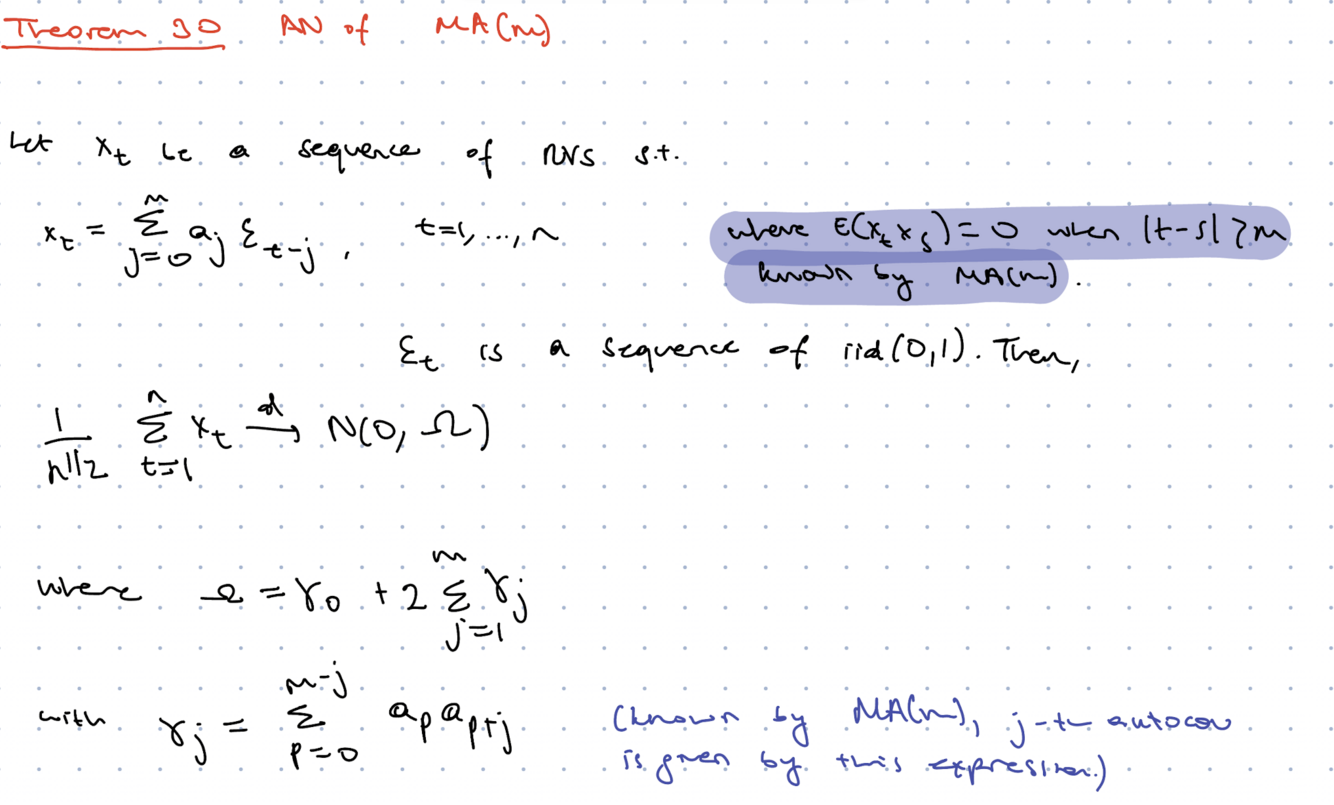 Theorem 30 AN of MA(m)
Let x_t be a sequence of RVs s.t.
x_t = Σ_{j=0}^{m} a_j ε_{t-j}, t=1,...,n
where E(x_t x_s) = 0 when |t-s| > m
known by MA(m).
ε_t is a sequence of iid(0,1). Then,
1/n^{1/2} Σ_{t=1}^{n} x_t →^d N(0, Ω)
where Ω = γ_0 + 2 Σ_{j=1}^{m} γ_j
with γ_j = Σ_{p=0}^{m-j} a_p a_{p+j}
(known by MA(m), j-th autocov
is given by this expression.)